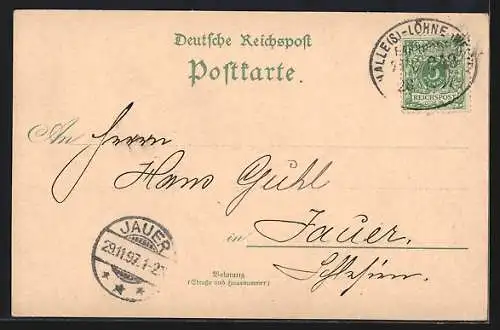 Deutsche Reichspost
Postkarte.
HALLE(S)-LÖHNE
5
REICHSPOST
An Herrn
Hans Guhl
in Jauer.
Schlesien.
JAUER
29.11.97.1-2
Wohnung
(Straße und Hausnummer)